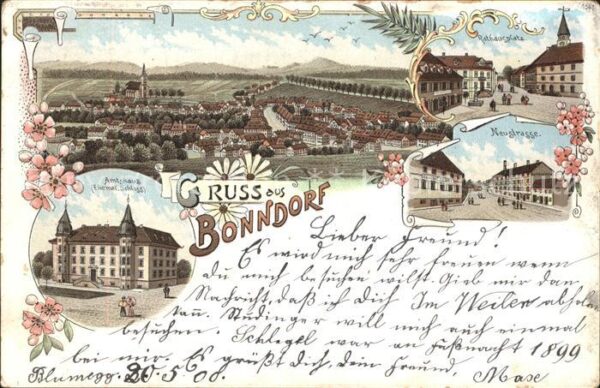 Rathausplatz
Neustrasse.
Amtshaus
(Ehemal. Schloss)
GRUSS aus
BONNDORF
Lieber Freund!
Es wird mich sehr freuen wenn
du mich besuchen wilst. Gieb mir dan
Nachricht, daß ich Dich Im Weiler abholen
kan. will mich auch einmal
besuchen. Schlegel war an Faßnacht 1899
bei mir. Es grüßt Dich, dein Freund, Max
Blumegg. 20. 5. 00.